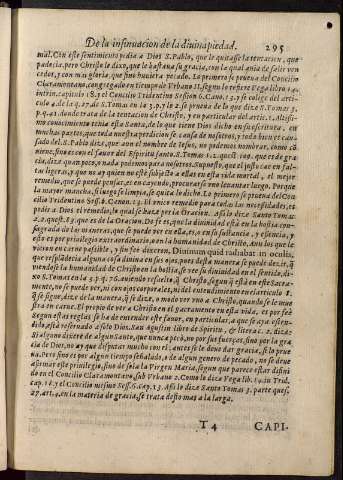 De la insinuacion de la diuina piedad. 295
mal. Con este sentimiento pedia a Dios S. Pablo, que le quitasse la tentacion, que
padecia. pero Christo le dixo, que le bastaua su gracia, con la qual auia de salir ven
cedor, y con mas gloria, que sino huuiera peleado. Lo primero se prueua del Concilio
Claramontano, congregado en tiempo de Vrbano II. segun lo refiere Vega libro 14.
in trin. capitulo 18. y el Concilio Tridentino Session 6. Cano. 13. y se colige del arti-
culo 4. de la q. 27. de S. Tomas en la 3. p. y lo 2. se prueua de lo que dize S. Tomas 3.
p. q. 41. donde trata de la tentacion de Christo, y en particular del artic. 1. Altissi-
mo conocimiento tenia esta Santa, de lo que tiene Dios dicho en su escritura, en
muchas partes, que toda nuestra perdicion se causa de nosotros, y todo bien es can-
sado del S. Pablo dize, que aun el nombre de Iesus, no podemos nombrar, como co
niene, sino es con el fauor del Espiritu santo. S. Tomas 1. 2. quest. 109. que es de gra-
cia, dize quan poco, y nada podemos para nosotros. Supuesto, que el justo cae en fal-
tas ligeras, y que no ay quien no estè subjeto a ellas en esta vida mortal, el mejor
remedio, que se puede pensar, es en cayendo, procurar se leuantar luego. Porque
la mayor mancha, si luego se limpia, se quita lo dicho. Lo primero se prueua del Con
cilio Tridentino Sess. 6. Canon. 23. El vnico remedio para todas las necesidades, es
pedir a Dios el remedio, lo qual se haze por la Oracion. Assi lo dize Santo Tomas
2. 2. quest. 83. que es de la Oracion. De fe es, que la diuinidad està en la hostia con-
sagrada de las maneras, que se puede ver en ella, es, o en su sustancia, y essencia, y
esto es por priuilegio extraordinario, o en la humanidad de Christo. Aun los que le
vieron en carne passible, y sin fee dixeron, Diuinum quid radiabat in oculis,
que resplãdecia alguna cosa diuina en sus ojos, pues desta manera se puede dezir, q̃
viendose la humanidad de Christo en la hostia, se vee su diuinidad en el sentido, di-
no S. Tomas en la 3. p. q. 76. auiendo resuelto, q̃ Christo, segun q̃ està en este Sacra-
mento, no se puede ver, ni con ojos corporales, ni del entendimiento en el articulo 8.
q̃ se figure, dize, de la manera, q̃ se dize, o modo ver vno a Christo, quando se le mue
stra en carne. El propio de ver a Christo en el Sacramento en esta vida, es por feè
Segun estas reglas se ha de entender este fauor, en particular, a que se aya esten-
dido, està reseruado a solo Dios. San Agustin libro de Spiritu, & litera c. 2. dize
q̃ si alguno dixere de algun Santo, que nunca pecò, no por sus fuerças, sino por la gra
cia de Dios, no ay que disputar mucho con el: antes se le deue dar gracia, si lo prue
ua. Pero sino es por algun tiempo señalado, o de algun genero de pecado, no se deue
afirmar este priuilegio, sino de sola la Virgen Maria, segun que parece estar difini
do en el Concilio Claramontano, sub Vrbano 2. Como lo dize Vega lib. 14. in Trid.
cap. 18. y el Concilio niceno Sess. 6. cap. 23. Assi lo dize Santo Tomas 3. parte ques.
27. art. 4. en la materia de gracia, se trata desto mas a la larga.
T 4 CAPI-